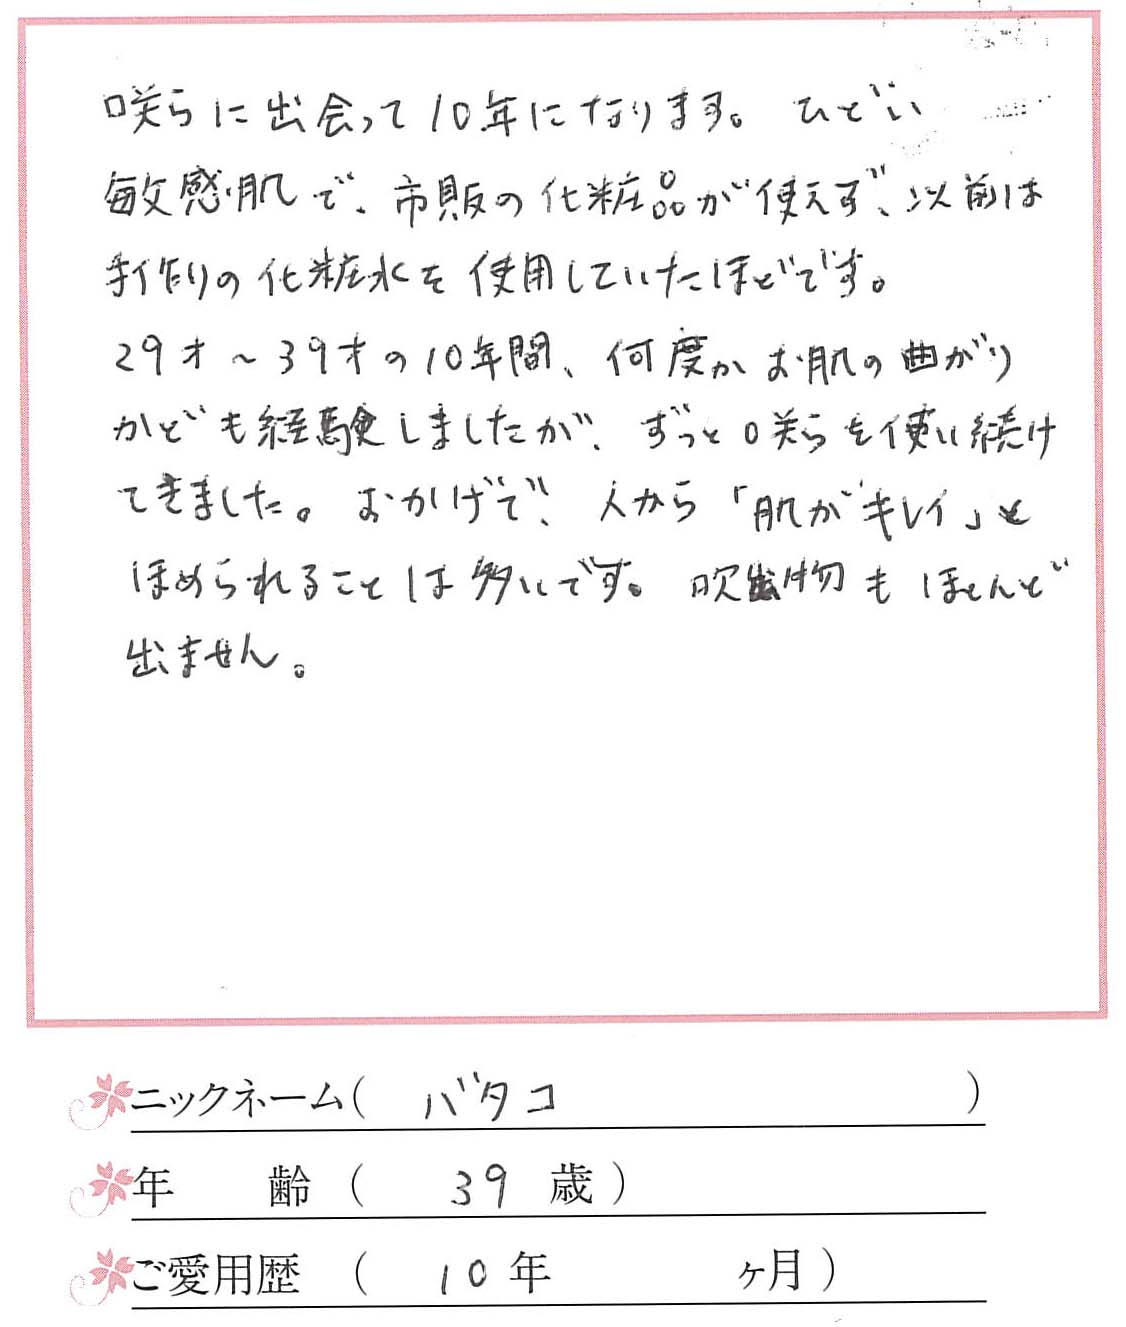 咲らに出会って10年になります。ひどい
敏感肌で、市販の化粧品が使えず、以前は
手作りの化粧水を使用していたほどです。
29才～39才の10年間、何度かお肌の曲がり
かども経験しましたが、ずっと咲らを使い続け
てきました。おかげで、人から「肌がキレイ」と
ほめられることは多いです。吹出物もほとんど
出ません。
ニックネーム( バタコ )
年 齢 ( 39 歳 )
ご愛用歴 ( 10 年 ヶ月 )